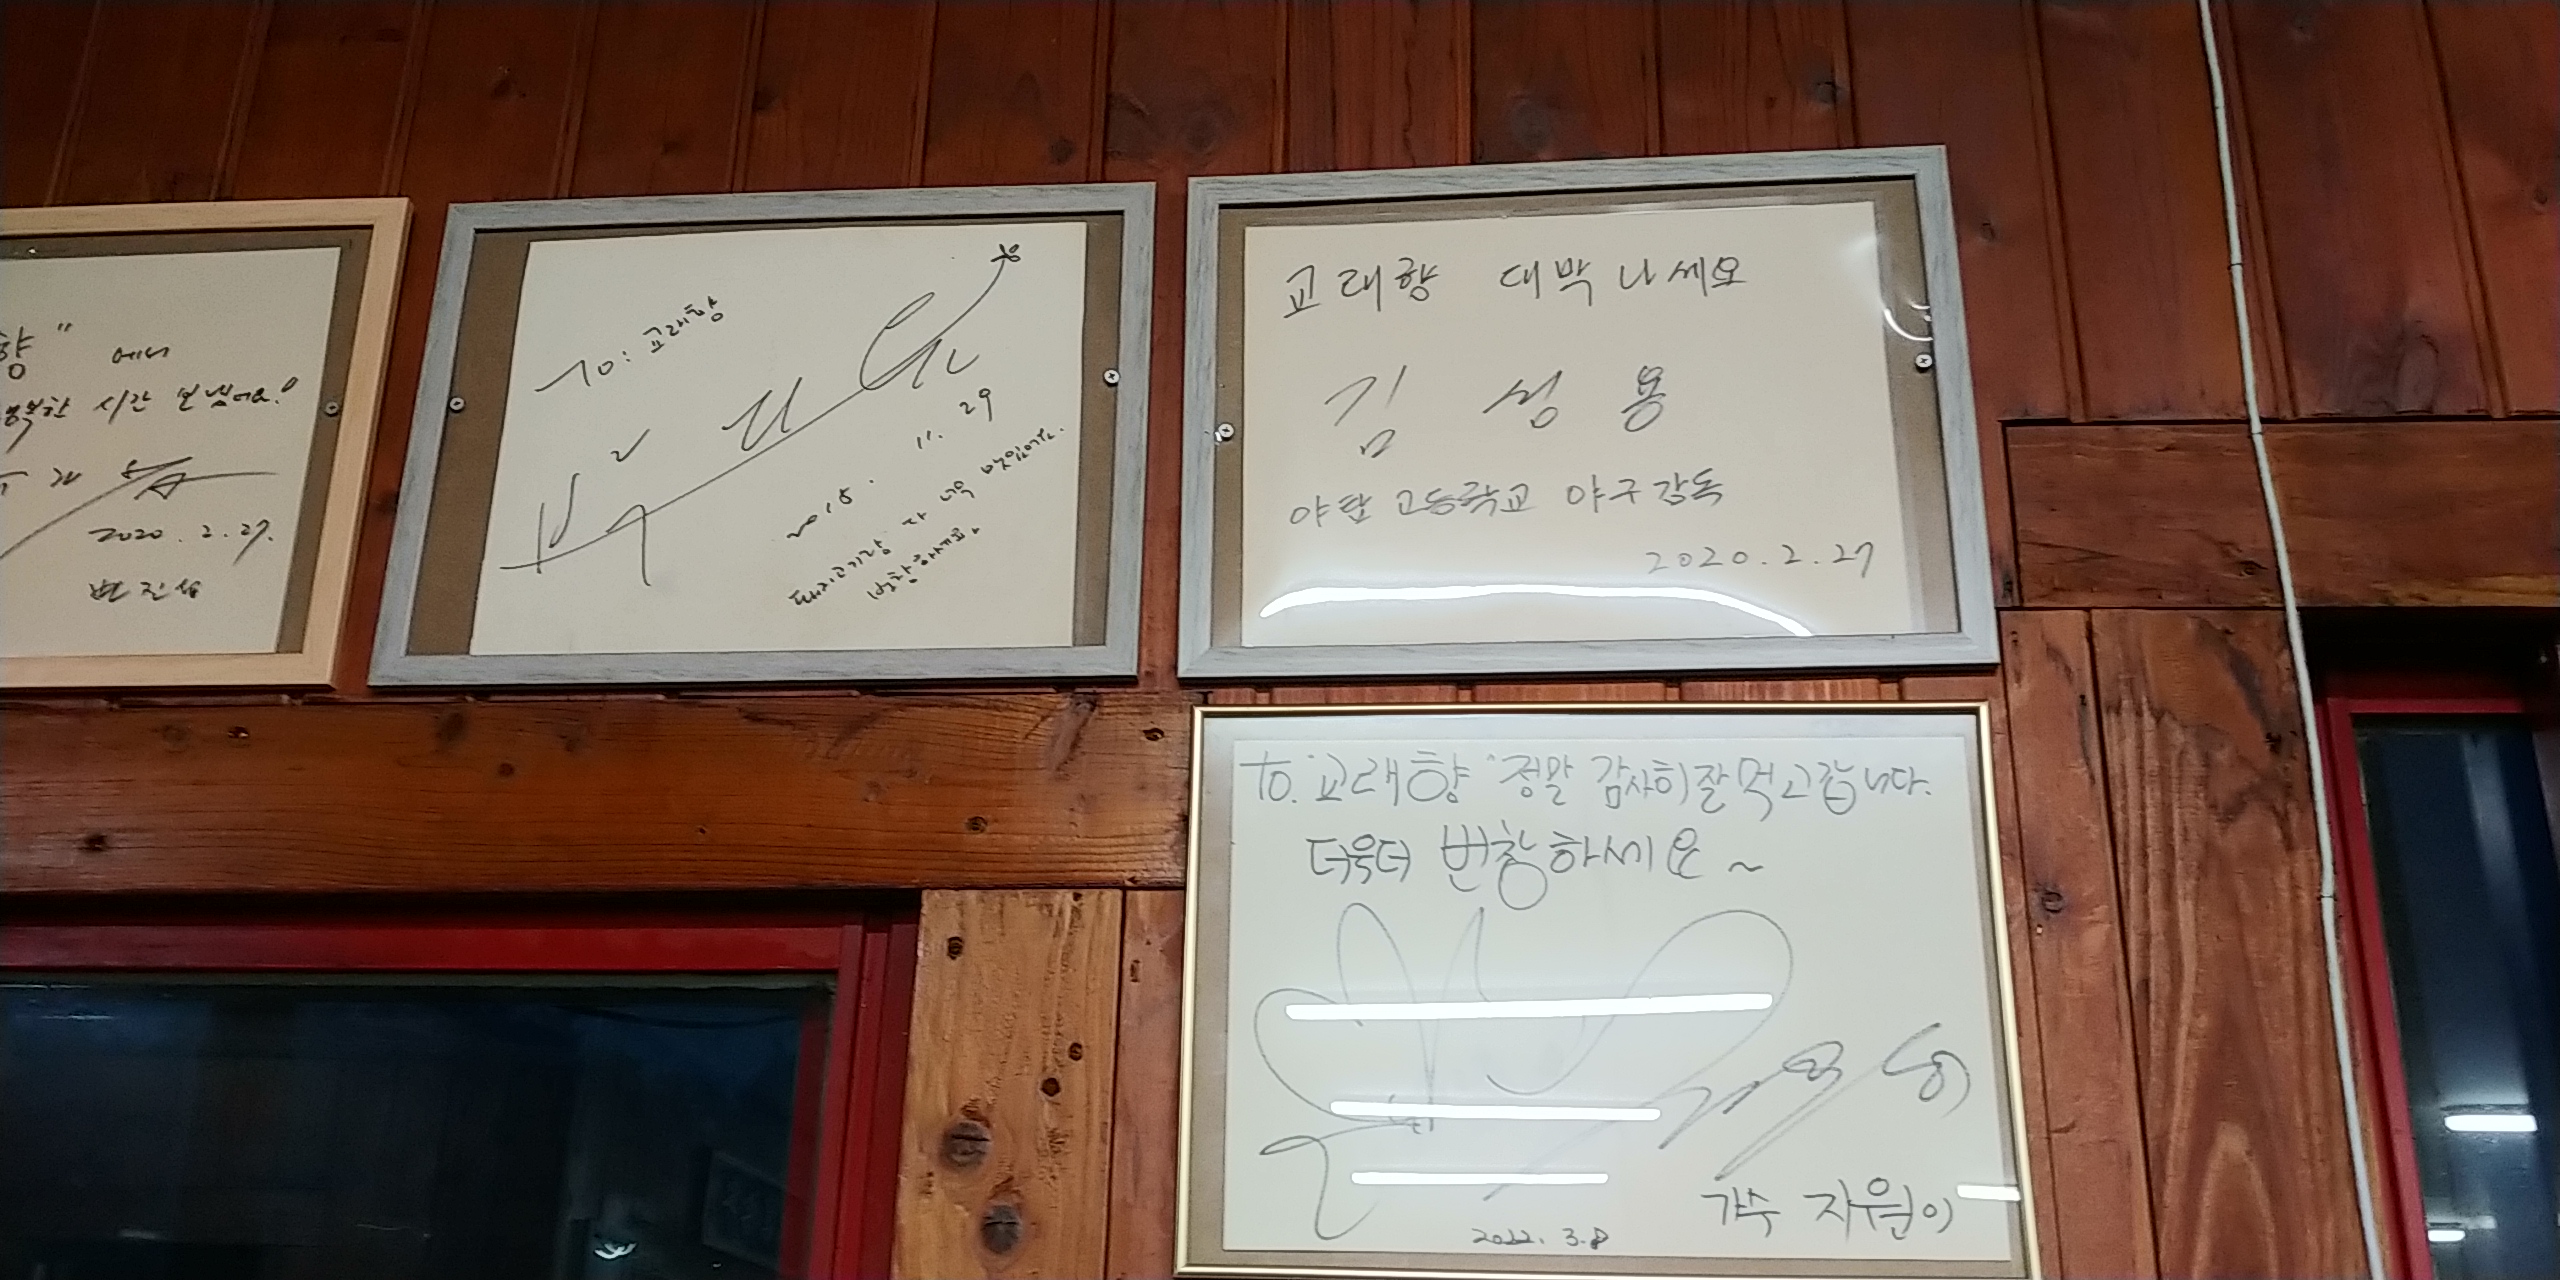 향" 에서
행복한 시간 보냈어요!
2020.2.27.
변진섭
To: 교래향
2018. 11. 29
돼지고기랑 다 너무 맛있어요.
번창하세요.
교래향 대박나세요
김성용
야탑고등학교 야구감독
2020.2.27
to. "교래향" 정말 감사히 잘먹고갑니다.
더욱더 번창하세요~
가수 지원이
2022. 3.8